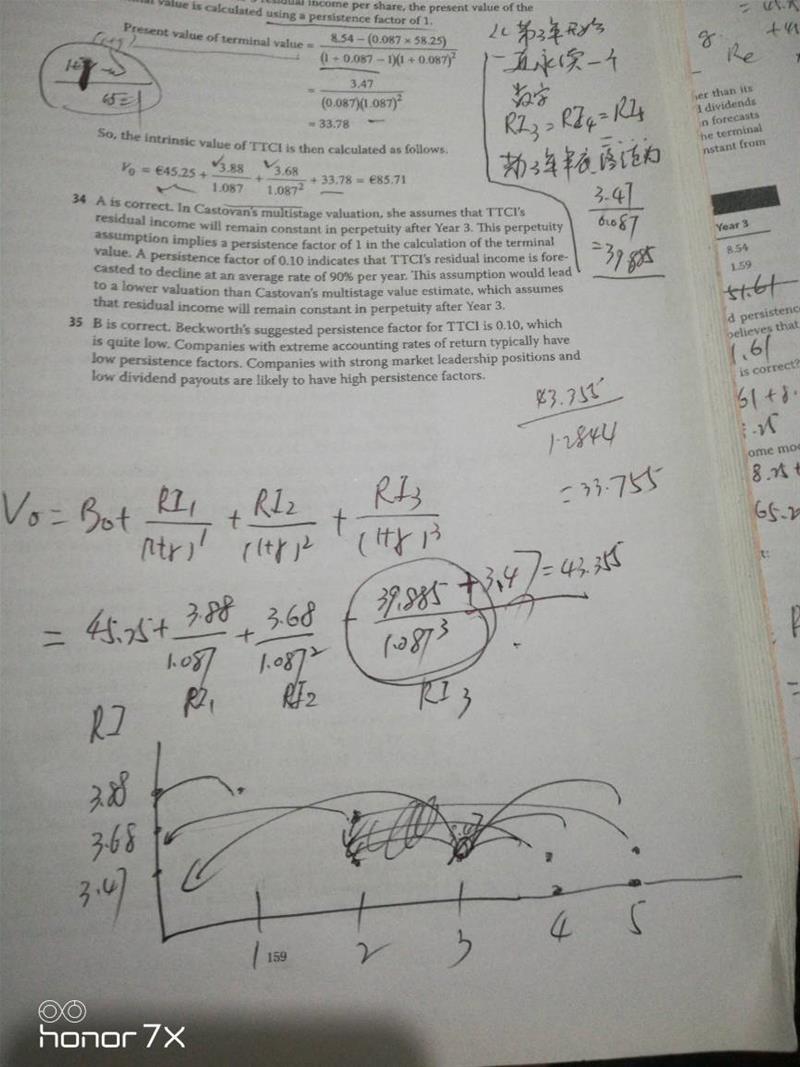 residual income per share, the present value of the
nal value is calculated using a persistence factor of 1.
Present value of terminal value = 8.54 − (0.087 × 58.25) / (1 + 0.087 − 1)(1 + 0.087)²
= 3.47 / (0.087)(1.087)²
= 33.78
So, the intrinsic value of TTCI is then calculated as follows.
V₀ = €45.25 + 3.88 / 1.087 + 3.68 / 1.087² + 33.78 = €85.71
34 A is correct. In Castovan's multistage valuation, she assumes that TTCI's
residual income will remain constant in perpetuity after Year 3. This perpetuity
assumption implies a persistence factor of 1 in the calculation of the terminal
value. A persistence factor of 0.10 indicates that TTCI's residual income is fore-
casted to decline at an average rate of 90% per year. This assumption would lead
to a lower valuation than Castovan's multistage value estimate, which assumes
that residual income will remain constant in perpetuity after Year 3.
35 B is correct. Beckworth's suggested persistence factor for TTCI is 0.10, which
is quite low. Companies with extreme accounting rates of return typically have
low persistence factors. Companies with strong market leadership positions and
low dividend payouts are likely to have high persistence factors.
从第3年开始
一直永续一个
数字
RI₃ = RI₄ = RI₅
3.47 / 0.087
= 39.885
43.355 / 1.2844
= 33.755
V₀ = B₀ + RI₁ / (1+r)¹ + RI₂ / (1+r)² + RI₃ / (1+r)³
= 45.25 + 3.88 / 1.087 + 3.68 / 1.087² + 39.885 + 3.47 = 43.355 / 1.087³
RI₁ RI₂ RI₃
RI
3.88
3.68
3.47
1 2 3 4 5
159
g
Re
her than its
l dividends
n forecasts
he terminal
nstant from
Year 3
8.54
1.59
51.61
d persistence
believes that
1.61
is correct?
61 + 8.
ome mo
8.25 +
65.2
t:
honor 7X